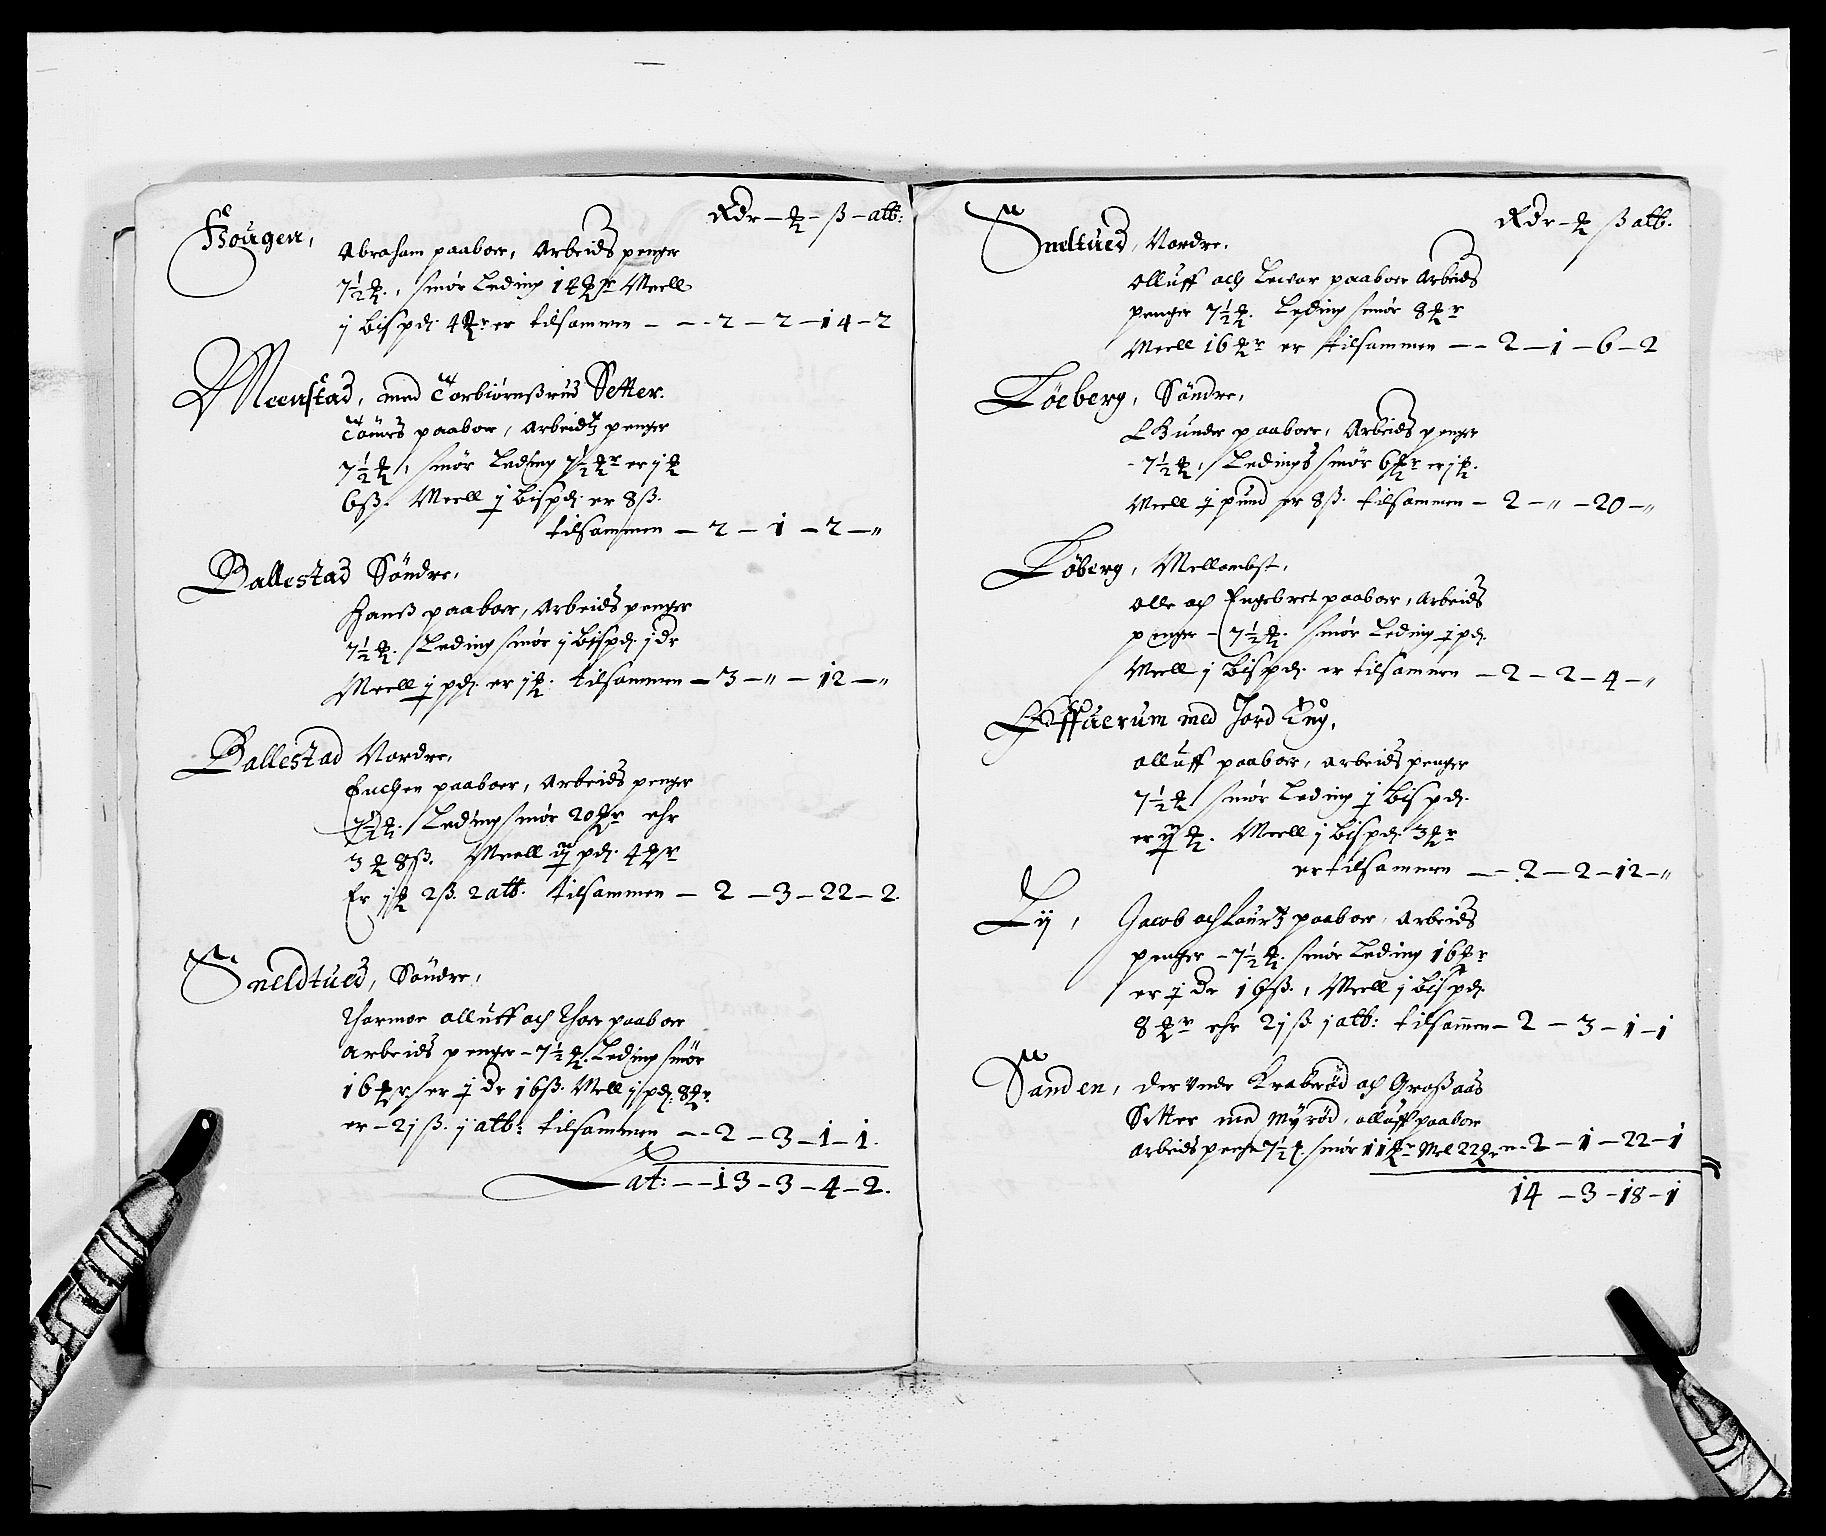 Rdr – ⅌ – ß – alb:
Hougen,
Abraham paaboer, Arbeids penger
7½ ⅌, smör Leding 14 ⅌r Meell
j bispd: 4 ⅌r er tilsammen – – 2 – 2 – 14 – 2
Meenstad, med Torbiörnßrud Setter.
paaboer, Arbeidtz penger
7½ ⅌, smör Leding 7½ ⅌r er j ⅌
6 ß. Meell ɉ bispd: er 8 ß.
tilsammen – 2 – 1 – 2 – „
Ballestad Söndre,
Hanß paaboer, Arbeids penger
7½ ⅌. Leding smör j bispd: j dr
Meell ɉ pd: er j ⅌: tilsammen – 3 – „ – 12 – „
Ballestad Nordre,
paaboer, Arbeids penger
7½ ⅌. Leding smör 20 ⅌r ehr
3 ⅌ 8 ß. Meell pd: 4 ⅌r
Er j ⅌ 2 ß. 2 alb. tilsammen – 2 – 3 – 22 – 2.
Sneldtued, Söndre,
Thormoe olluff och Thoer paaboer
Arbeids penger – 7½ ⅌. Leding smör
16 ⅌r er ɉ dr 16 ß. Mell j spd: 8 ⅌r.
er – 2j ß. j alb: tilsammen – – 2 – 3 – 1 – 1.
Lat: – – 13 – 3 – 4 – 2.
Rdr – ⅌ ß alb.
Sneltued, Nordre,
olluff och paaboer Arbeids
penger 7½ ⅌. Leding smör 8 ⅌r
Meell 16 ⅌r er tilsammen – – 2 – 1 – 6 – 2
Löeberg, Söndre,
paaboer, Arbeids penger
– 7½ ⅌, Ledings smör 6 ⅌r er j ⅌.
Meell ɉ pund er 8 ß. tilsammen – 2 – „ – 20 – „
Löberg, Mellombst,
olle och Engebret paaboer, Arbeids
penger – 7½ ⅌. smör Leding ɉ pd:
Meell j bispd: er tilsammen – 2 – 2 – 4 – „
med Jord
olluff paaboer, arbeids penger
7½ ⅌ smör Leding ɉ bispd.
er ⅌. Meell j bispd: 3 ⅌r
er tilsammen – – 2 – 2 – 12 – „
Lij, Jacob och Lauritz paaboer, Arbeids
penger – 7½ ⅌. smör Leding 16 ⅌r
er ɉ dr 16 ß., Meell j bispd:
8 ⅌r ehr 2j ß j alb: tilsammen – 2 – 3 – 1 – 1
Sanden, der vnde Kraberöd och Großaas
Setter med Myröd, olluff paaboer
arbeids penge 7½ ⅌. smör 11 ⅌r Mel 22 ⅌r – 2 – 1 – 22 – 1
14 – 3 – 18 – 1